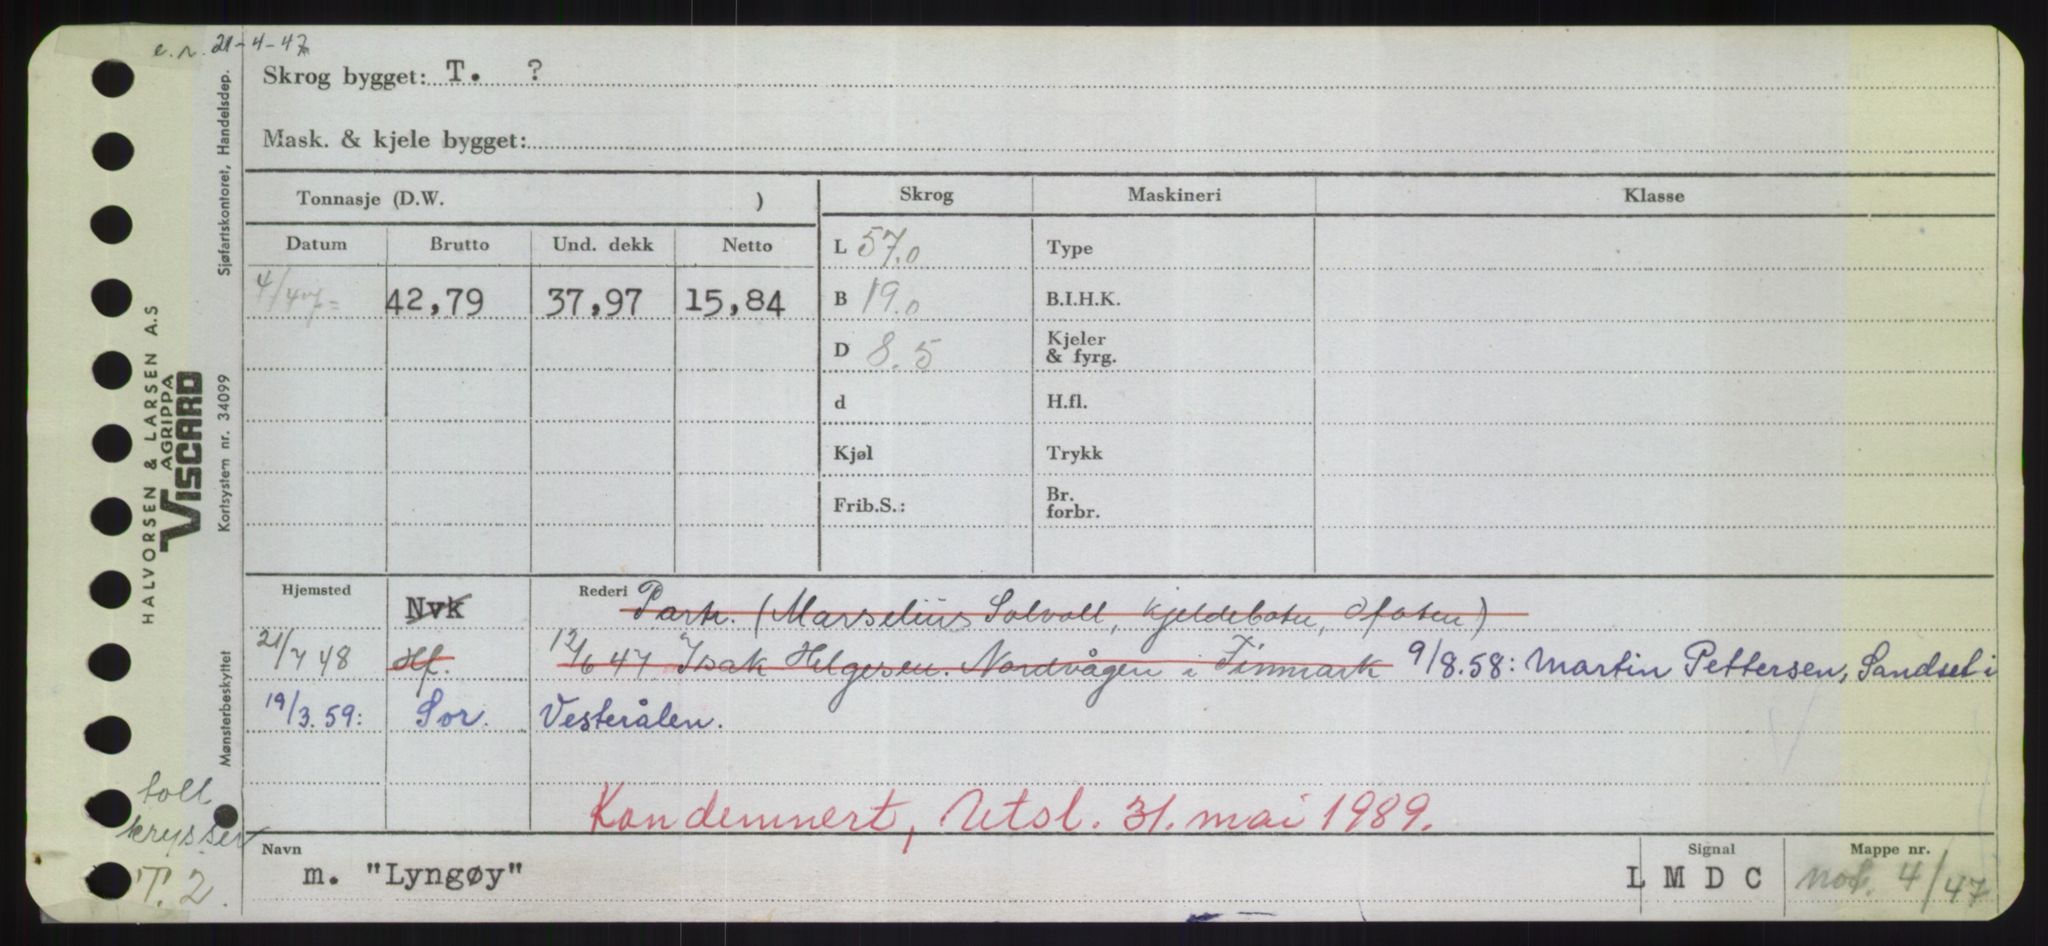 e.r. 21-4-47
Skrog bygget: T. ?
Mask. & kjele bygget:
Tonnasje (D.W. )
Skrog Maskineri Klasse
Datum Brutto Und. dekk Netto
4/47 42,79 37,97 15,84
L 57.0
B 19.0
D 8.5
d
Kjøl
Frib.S.:
Type
B.I.H.K.
Kjeler
& fyrg.
H.fl.
Trykk
Br.
forbr.
Hjemsted Nvk Rederi Partr. (Marselius Solvoll, Kjeldebotn, Ofoten)
21/7 48 Hf. 12/6 47 Isak Helgesen. Nordvågen i Finmark 9/8.58: Martin Pettersen, Sandset i
19/3.59: Sor. Vesterålen.
Kondemnert, Utsl. 31. mai 1989.
Navn m. "Lyngøy"
Signal L M D C
Mappe nr. nov. 4/47
toll
krysser
T. 2.
HALVORSEN & LARSEN A.S
AGRIPPA
VISCARD
Sjøfartskontoret, Handelsdep.
Kortsystem nr. 34099
Mønsterbeskyttet